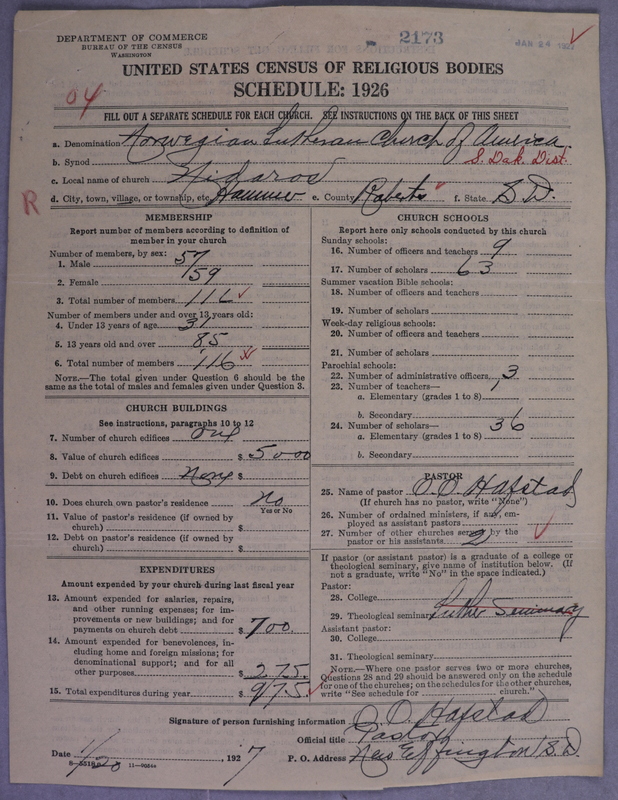 DEPARTMENT OF COMMERCE
BUREAU OF THE CENSUS
WASHINGTON
2173
JAN 24
UNITED STATES CENSUS OF RELIGIOUS BODIES
SCHEDULE: 1926
04
FILL OUT A SEPARATE SCHEDULE FOR EACH CHURCH. SEE INSTRUCTIONS ON THE BACK OF THIS SHEET
a. Denomination Norwegian Lutheran Church of America
b. Synod S. Dak. Dist.
c. Local name of church Nidaros
R
d. City, town, village, or township, etc. Hammer e. County Roberts f. State S.D.
MEMBERSHIP
Report number of members according to definition of
member in your church
Number of members, by sex:
1. Male 57
2. Female 59
3. Total number of members 116
Number of members under and over 13 years old:
4. Under 13 years of age 31
5. 13 years old and over 85
6. Total number of members 116
NOTE.—The total given under Question 6 should be the
same as the total of males and females given under Question 3.
CHURCH BUILDINGS
See instructions, paragraphs 10 to 12
7. Number of church edifices one
8. Value of church edifices $ 5000
9. Debt on church edifices none $
10. Does church own pastor's residence No
Yes or No
11. Value of pastor's residence (if owned by
church) $
12. Debt on pastor's residence (if owned by
church) $
EXPENDITURES
Amount expended by your church during last fiscal year
13. Amount expended for salaries, repairs,
and other running expenses; for im-
provements or new buildings; and for
payments on church debt $ 700.
14. Amount expended for benevolences, in-
cluding home and foreign missions; for
denominational support; and for all
other purposes $ 275.
15. Total expenditures during year $ 975.
CHURCH SCHOOLS
Report here only schools conducted by this church
Sunday schools:
16. Number of officers and teachers 9
17. Number of scholars 63
Summer vacation Bible schools:
18. Number of officers and teachers
19. Number of scholars
Week-day religious schools:
20. Number of officers and teachers
21. Number of scholars
Parochial schools:
22. Number of administrative officers 3
23. Number of teachers— 1
a. Elementary (grades 1 to 8)
b. Secondary
24. Number of scholars— 36
a. Elementary (grades 1 to 8)
b. Secondary
PASTOR
25. Name of pastor O. O. Hafstad
(If church has no pastor, write "None")
26. Number of ordained ministers, if any, em-
ployed as assistant pastors
27. Number of other churches served by the
pastor or his assistants 2
If pastor (or assistant pastor) is a graduate of a college or
theological seminary, give name of institution below. (If
not a graduate, write "No" in the space indicated.)
Pastor:
28. College
29. Theological seminary Luther Seminary
Assistant pastor:
30. College
31. Theological seminary
NOTE.—Where one pastor serves two or more churches,
Questions 28 and 29 should be answered only on the schedule
for one of the churches; on the schedules for the other churches,
write "See schedule for church."
Signature of person furnishing information O. O. Hafstad
Official title Pastor
Date 1/20, 1927 P. O. Address New Effington S.D.